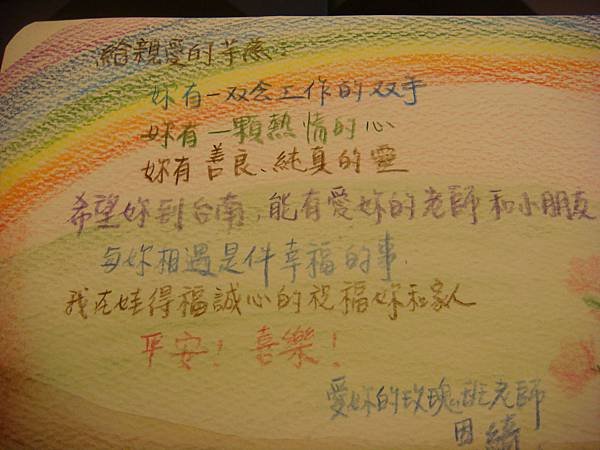 給親愛的芊慈:
妳有一双会工作的双手
妳有一顆熱情的心
妳有善良、純真的靈
希望妳到台南,能有愛妳的老師和小朋友
与妳相遇是件幸福的事.
我在娃得福誠心的祝福妳和家人
平安!喜樂!
愛妳的玫瑰班老師